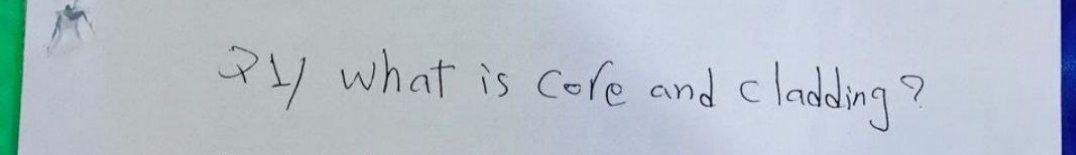 Q1/ what is Core and cladding?